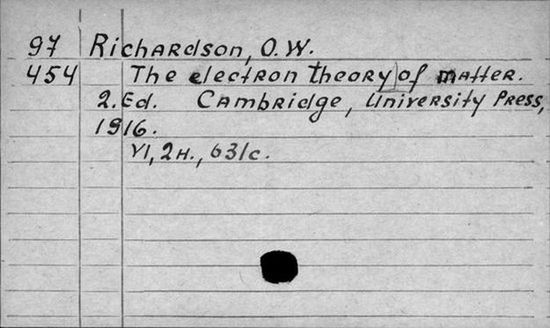 97 Richardson, O.W.
454 The electron theory of matter.
2. Ed. Cambridge, University Press,
1916.
VI, 2H., 631c.